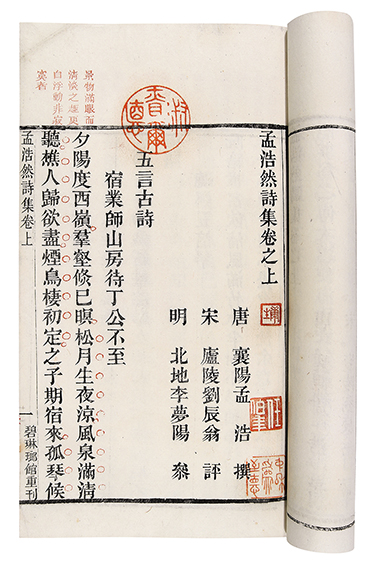 孟浩然詩集卷之上
唐 襄陽孟 浩 撰
宋 廬陵劉辰翁 評
明 北地李夢陽 叅
五言古詩
宿業師山房待丁公不至
夕陽度西嶺羣壑倐已暝松月生夜涼風泉滿清
聽樵人歸欲盡煙鳥棲初定之子期宿來孤琴候
景物滿眼而
清淡之趣更
自浮動非寂
寞者
孟浩然詩集卷上 一 碧琳瑯館重刊